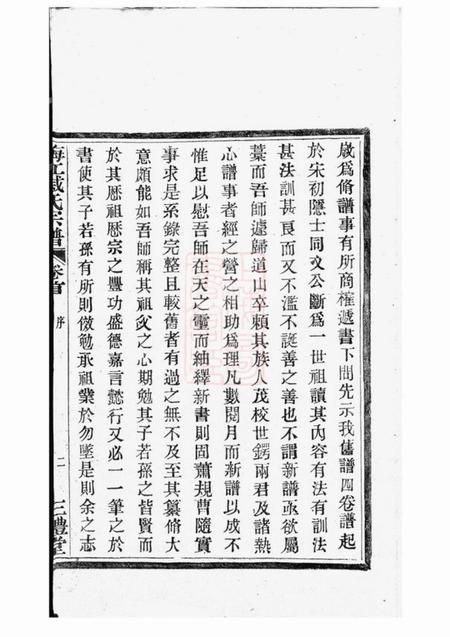 歲爲脩譜事有所商榷遞書下問先示我舊譜四卷譜起
於宋初隱士同文公斷爲一世祖讀其內容有法有訓法
甚法訓甚良而又不濫不誕善之善也不謂新譜亟欲屬
藁而吾師遽歸道山卒賴其族人茂校世鍔兩君及諸熱
心譜事者經之營之相助爲理凡數閱月而新譜以成不
惟足以慰吾師在天之靈而紬繹新書則固蕭規曹隨實
事求是系錄完整且較舊者有過之無不及至其纂脩大
意頗能如吾師稱其祖父之心期勉其子若孫之皆賢而
於其歷祖歷宗之豐功盛德嘉言懿行又必一一筆之於
書使其子若孫有所則傚勉承祖業於勿墜是則余之志
梅江戚氏宗譜 卷首 序 二 三禮堂